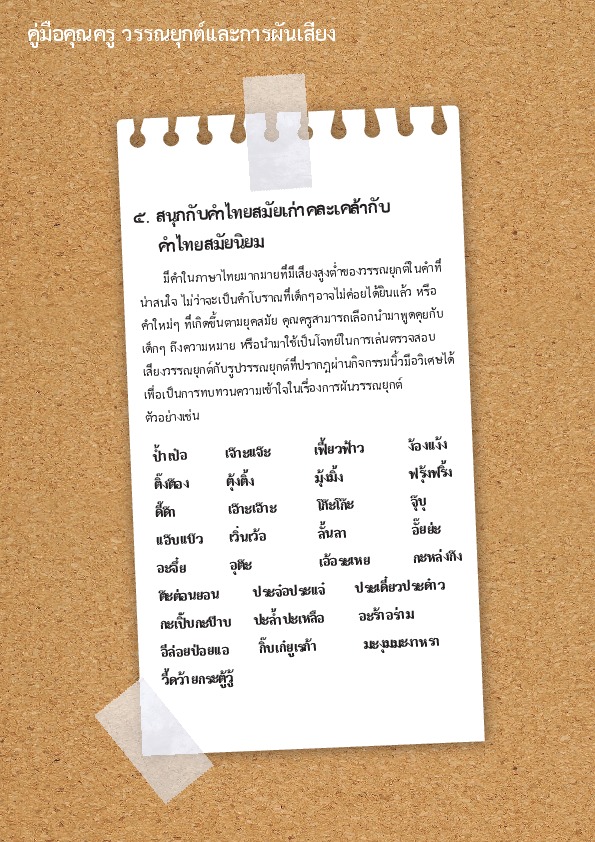 คู่มือคุณครู วรรณยุกต์และการผันเสียง
๕. สนุกกับคำไทยสมัยเก่าคละเคล้ากับ
คำไทยสมัยนิยม
มีคำในภาษาไทยมากมายที่มีเสียงสูงต่ำของวรรณยุกต์ในคำที่
น่าสนใจ ไม่ว่าจะเป็นคำโบราณที่เด็กๆอาจไม่ค่อยได้ยินแล้ว หรือ
คำใหม่ๆ ที่เกิดขึ้นตามยุคสมัย คุณครูสามารถเลือกนำมาพูดคุยกับ
เด็กๆ ถึงความหมาย หรือนำมาใช้เป็นโจทย์ในการเล่นตรวจสอบ
เสียงวรรณยุกต์กับรูปวรรณยุกต์ที่ปรากฏผ่านกิจกรรมนิ้วมือวิเศษได้
เพื่อเป็นการทบทวนความเข้าใจในเรื่องการผันวรรณยุกต์
ตัวอย่างเช่น
ป้ำเป๋อ เจ๊าะแจ๊ะ เฟี้ยวฟ้าว ง้องแง้ง
ติ๊งต๊อง ตุ้งติ้ง มุ้งมิ้ง ฟรุ้งฟริ้ง
ดี๊ด๊า เจ๊าะเจ๊าะ โก๊ะโก๊ะ จุ๊บุ
แอ๊บแบ๊ว เวิ่นเว้อ ลั้นลา อั๊ยย่ะ
อะจึ๋ย อุต๊ะ เอ้อระเหย กะหล่งกิง
ต๊ะต่อนยอน ประจ๋อประแจ๋ ประเดี๋ยวประด๋าว
กะเปิ๊บกะป๊าบ ปะล้ำปะเหลือ อะร้าอร่าม
อีล่อยป๋อยแอ กิ๊บเก๋ยูเรก้า มะงุมมะงาหรา
วี้ดว้ายกระตู้วู้